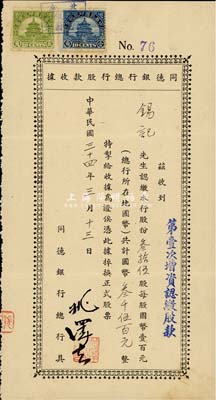 10 CENTS
No. 76
同德銀行總行股款收據
茲收到
錫記
先生認繳本行股份叁拾伍股每股國幣壹百元
(總行所在地國幣)共計國幣叁千伍百元整
特掣給收據為證俟憑此據掉換正式股票
中華民國三十四年三月十三日
同德銀行總行具
第壹次增資認繳股款